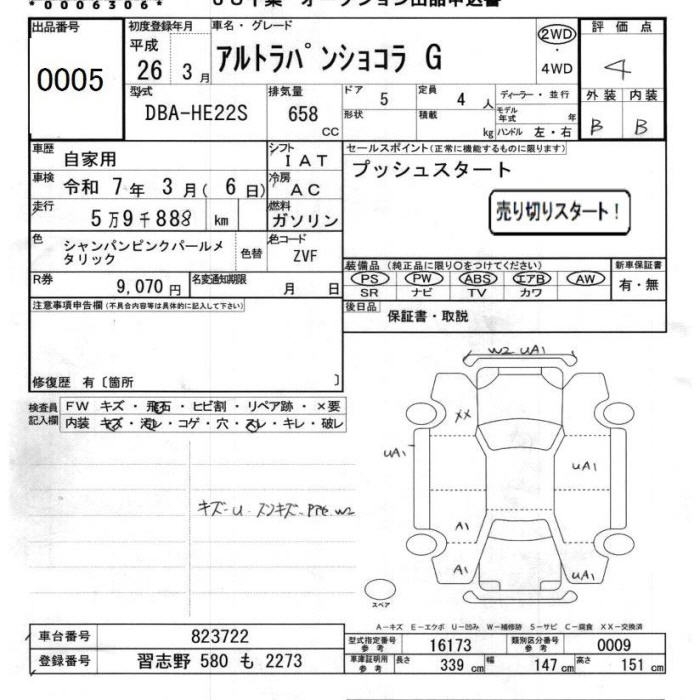 *0006306*
出品番号
0005
初度登録年月
平成
26 3月
車名・グレード
アルトラパンショコラ G
2WD
・
4WD
評価点
4
外装 内装
B B
型式
DBA-HE22S
排気量
658
CC
ドア
5
定員
4 人
形状
積載
kg
ディーラー・並行
モデル年式 年
ハンドル 左・右
車歴
自家用
シフト
IAT
車検
令和 7年 3月( 6日)
冷房
AC
走行
5万9千888 km
燃料
ガソリン
色
シャンパンピンクパールメタリック
色替
色コード
ZVF
R券
9,070 円
名変通知期限
月 日
セールスポイント(正常に機能するものに限ります)
プッシュスタート
売り切りスタート!
装備品 (純正品に限り○をつけてください)
PS PW ABS エアB AW
SR ナビ TV カワ
新車保証書
有・無
後日品
保証書・取説
注意事項申告欄(不具合内容等は具体的に記入して下さい)
修復歴 有〔箇所 〕
検査員記入欄
FW キズ・飛石・ヒビ割・リペア跡・×要
内装 キズ・汚レ・コゲ・穴・スレ・キレ・破レ
キズ-U
W2 UA1
XX
UA1
UA1
A1
A1
UA1
スペア
A-キズ E-エクボ U-凹み W-補修跡 S-サビ C-腐食 XX-交換済
車台番号
823722
登録番号
習志野 580 も 2273
型式指定番号 参考
16173
類別区分番号 参考
0009
車庫証明用 参考
長さ 339 cm 幅 147 cm 高さ 151 cm